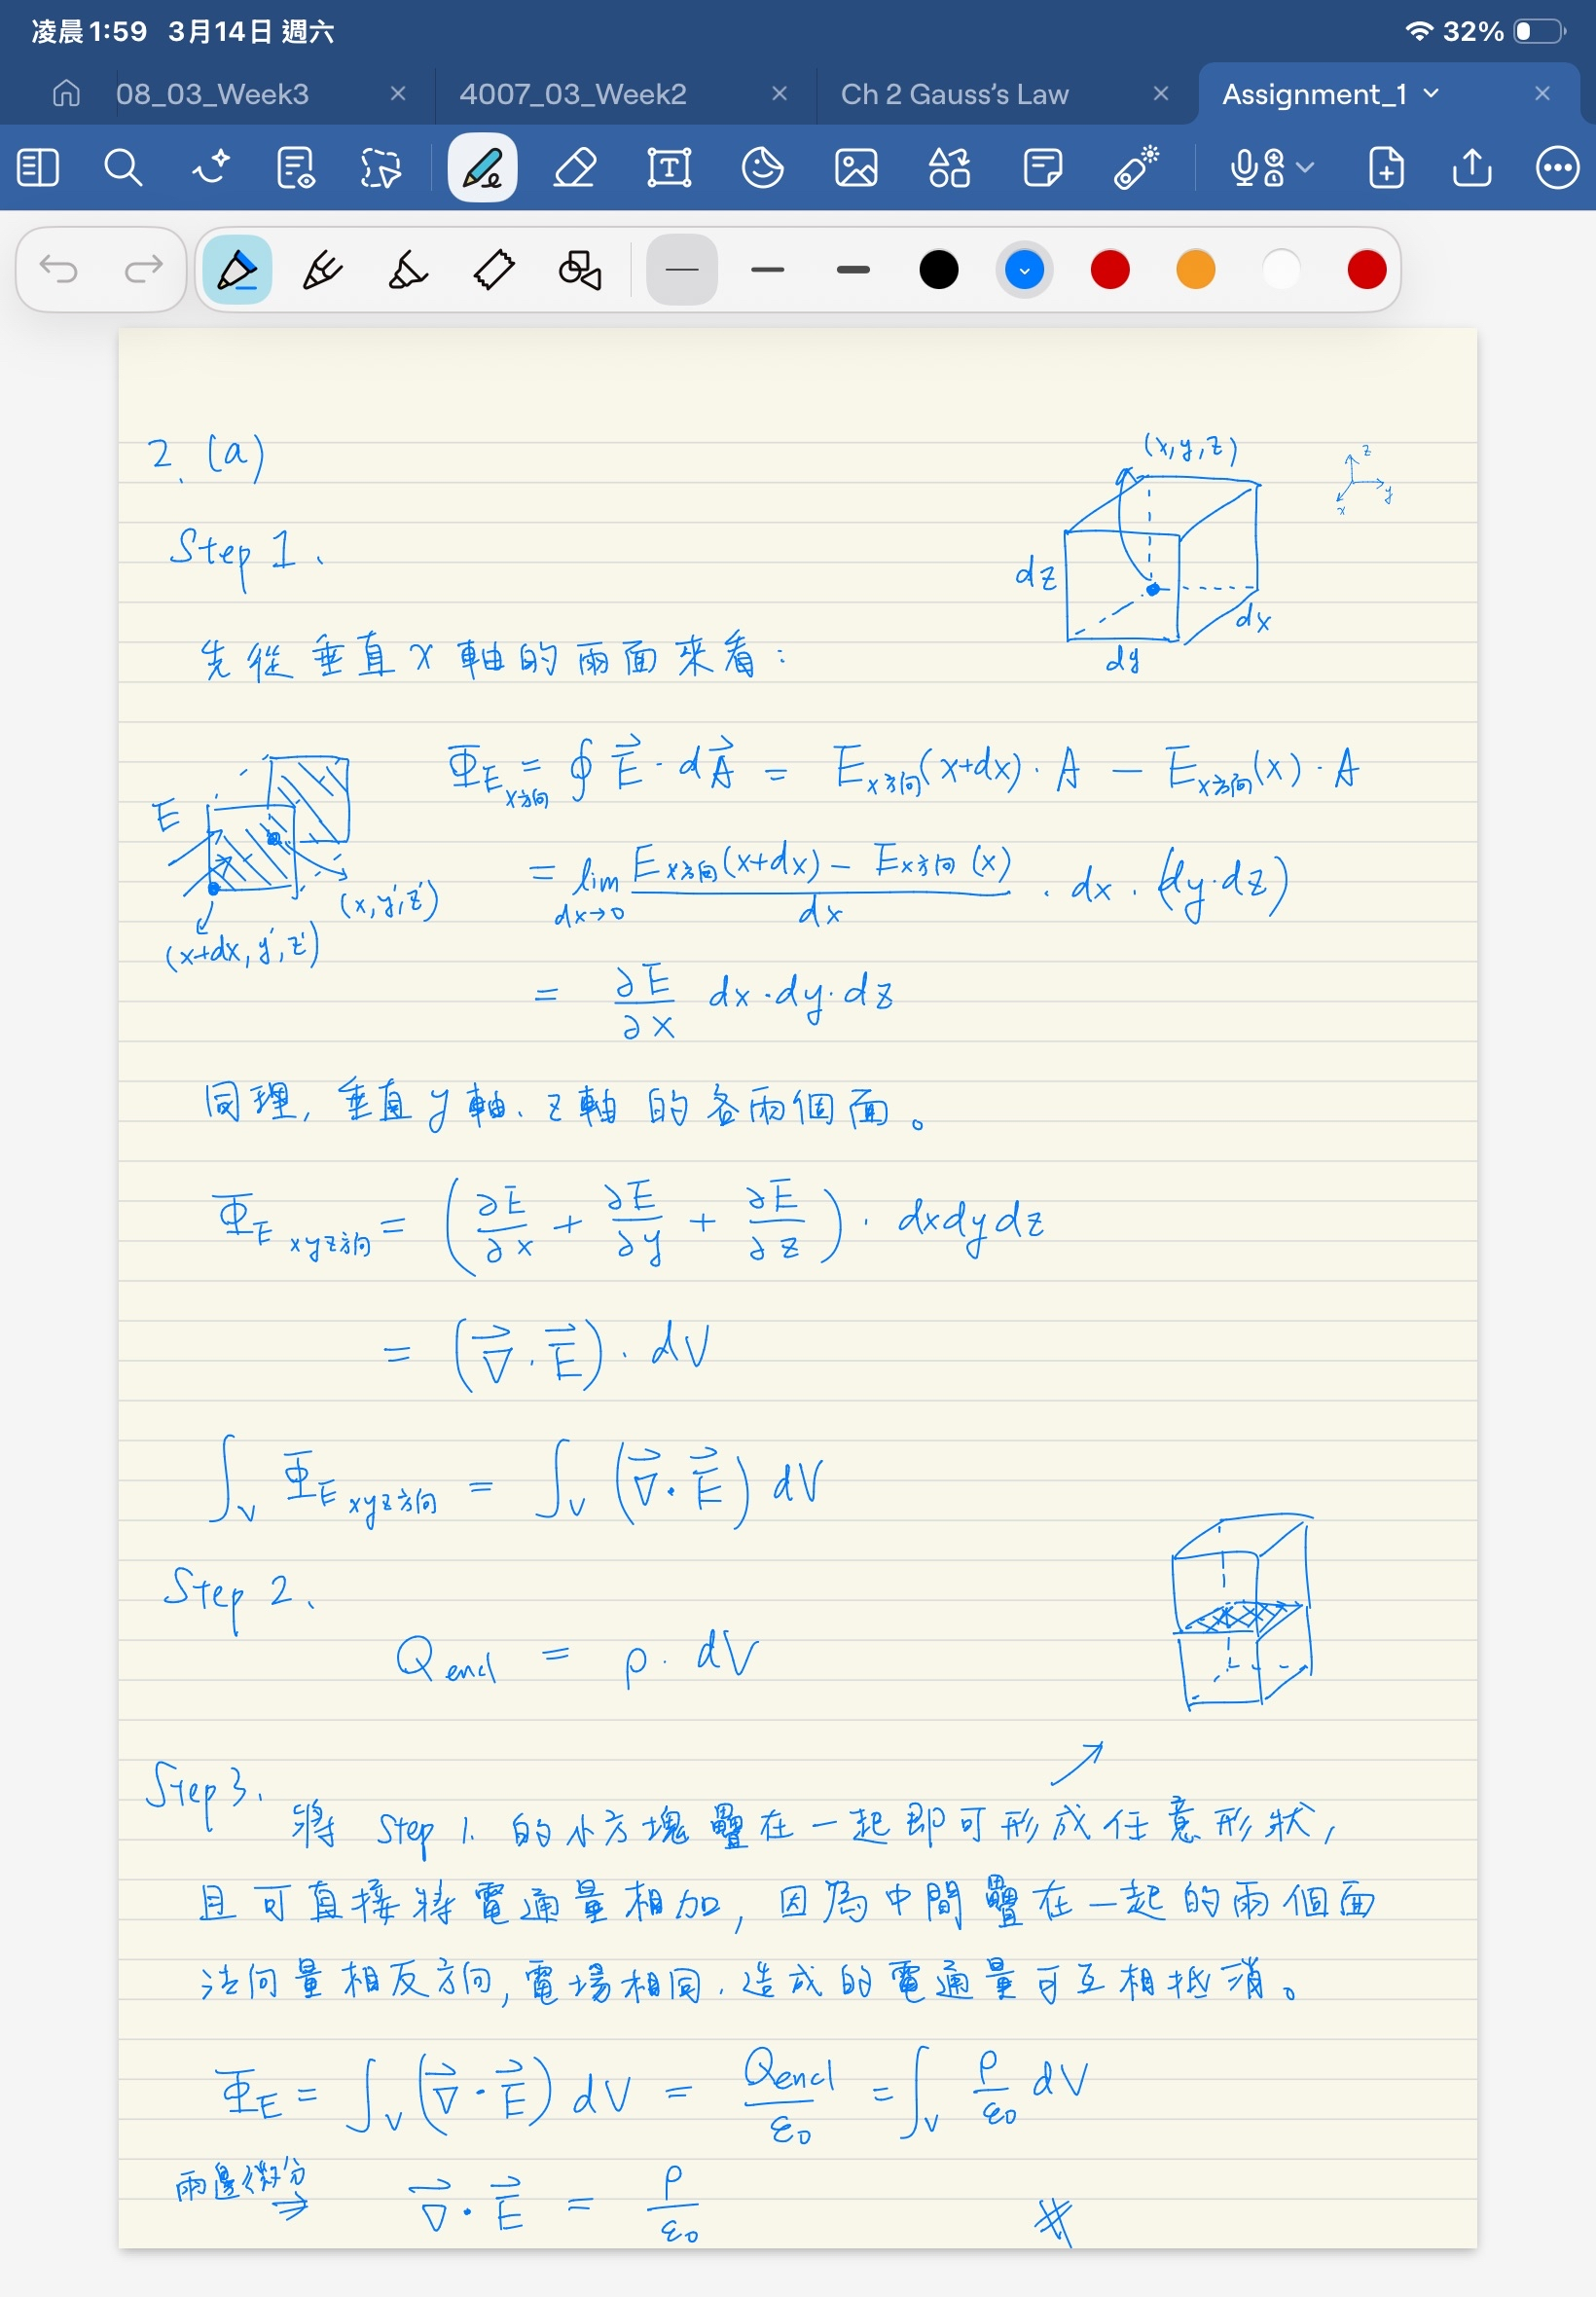 凌晨1:59 3月14日 週六 32%
08_03_Week3 4007_03_Week2 Ch 2 Gauss's Law Assignment_1
2. (a)
(x,y,z)
z
y
x
Step 1.
dz
dx
dy
先從垂直 x 軸的兩面來看:
Φ_E x方向 = ∮ E⃗ · dA⃗ = E_x方向(x+dx) · A − E_x方向(x) · A
E
(x, y', z')
(x+dx, y', z')
= lim_{dx→0} (E_x方向(x+dx) − E_x方向(x)) / dx · dx · (dy·dz)
= ∂E/∂x dx·dy·dz
同理, 垂直 y 軸、z 軸 的各兩個面。
Φ_E xyz方向 = (∂E/∂x + ∂E/∂y + ∂E/∂z) · dxdydz
= (∇⃗ · E⃗) · dV
∫_V Φ_E xyz方向 = ∫_V (∇⃗ · E⃗) dV
Step 2.
Q_encl = ρ · dV
Step 3.
將 Step 1. 的小方塊疊在一起即可形成任意形狀,
且可直接將電通量相加, 因為中間疊在一起的兩個面
法向量相反方向, 電場相同. 造成的電通量可互相抵消。
Φ_E = ∫_V (∇⃗ · E⃗) dV = Q_encl/ε₀ = ∫_V ρ/ε₀ dV
兩邊微分 ⇒ ∇⃗ · E⃗ = ρ/ε₀